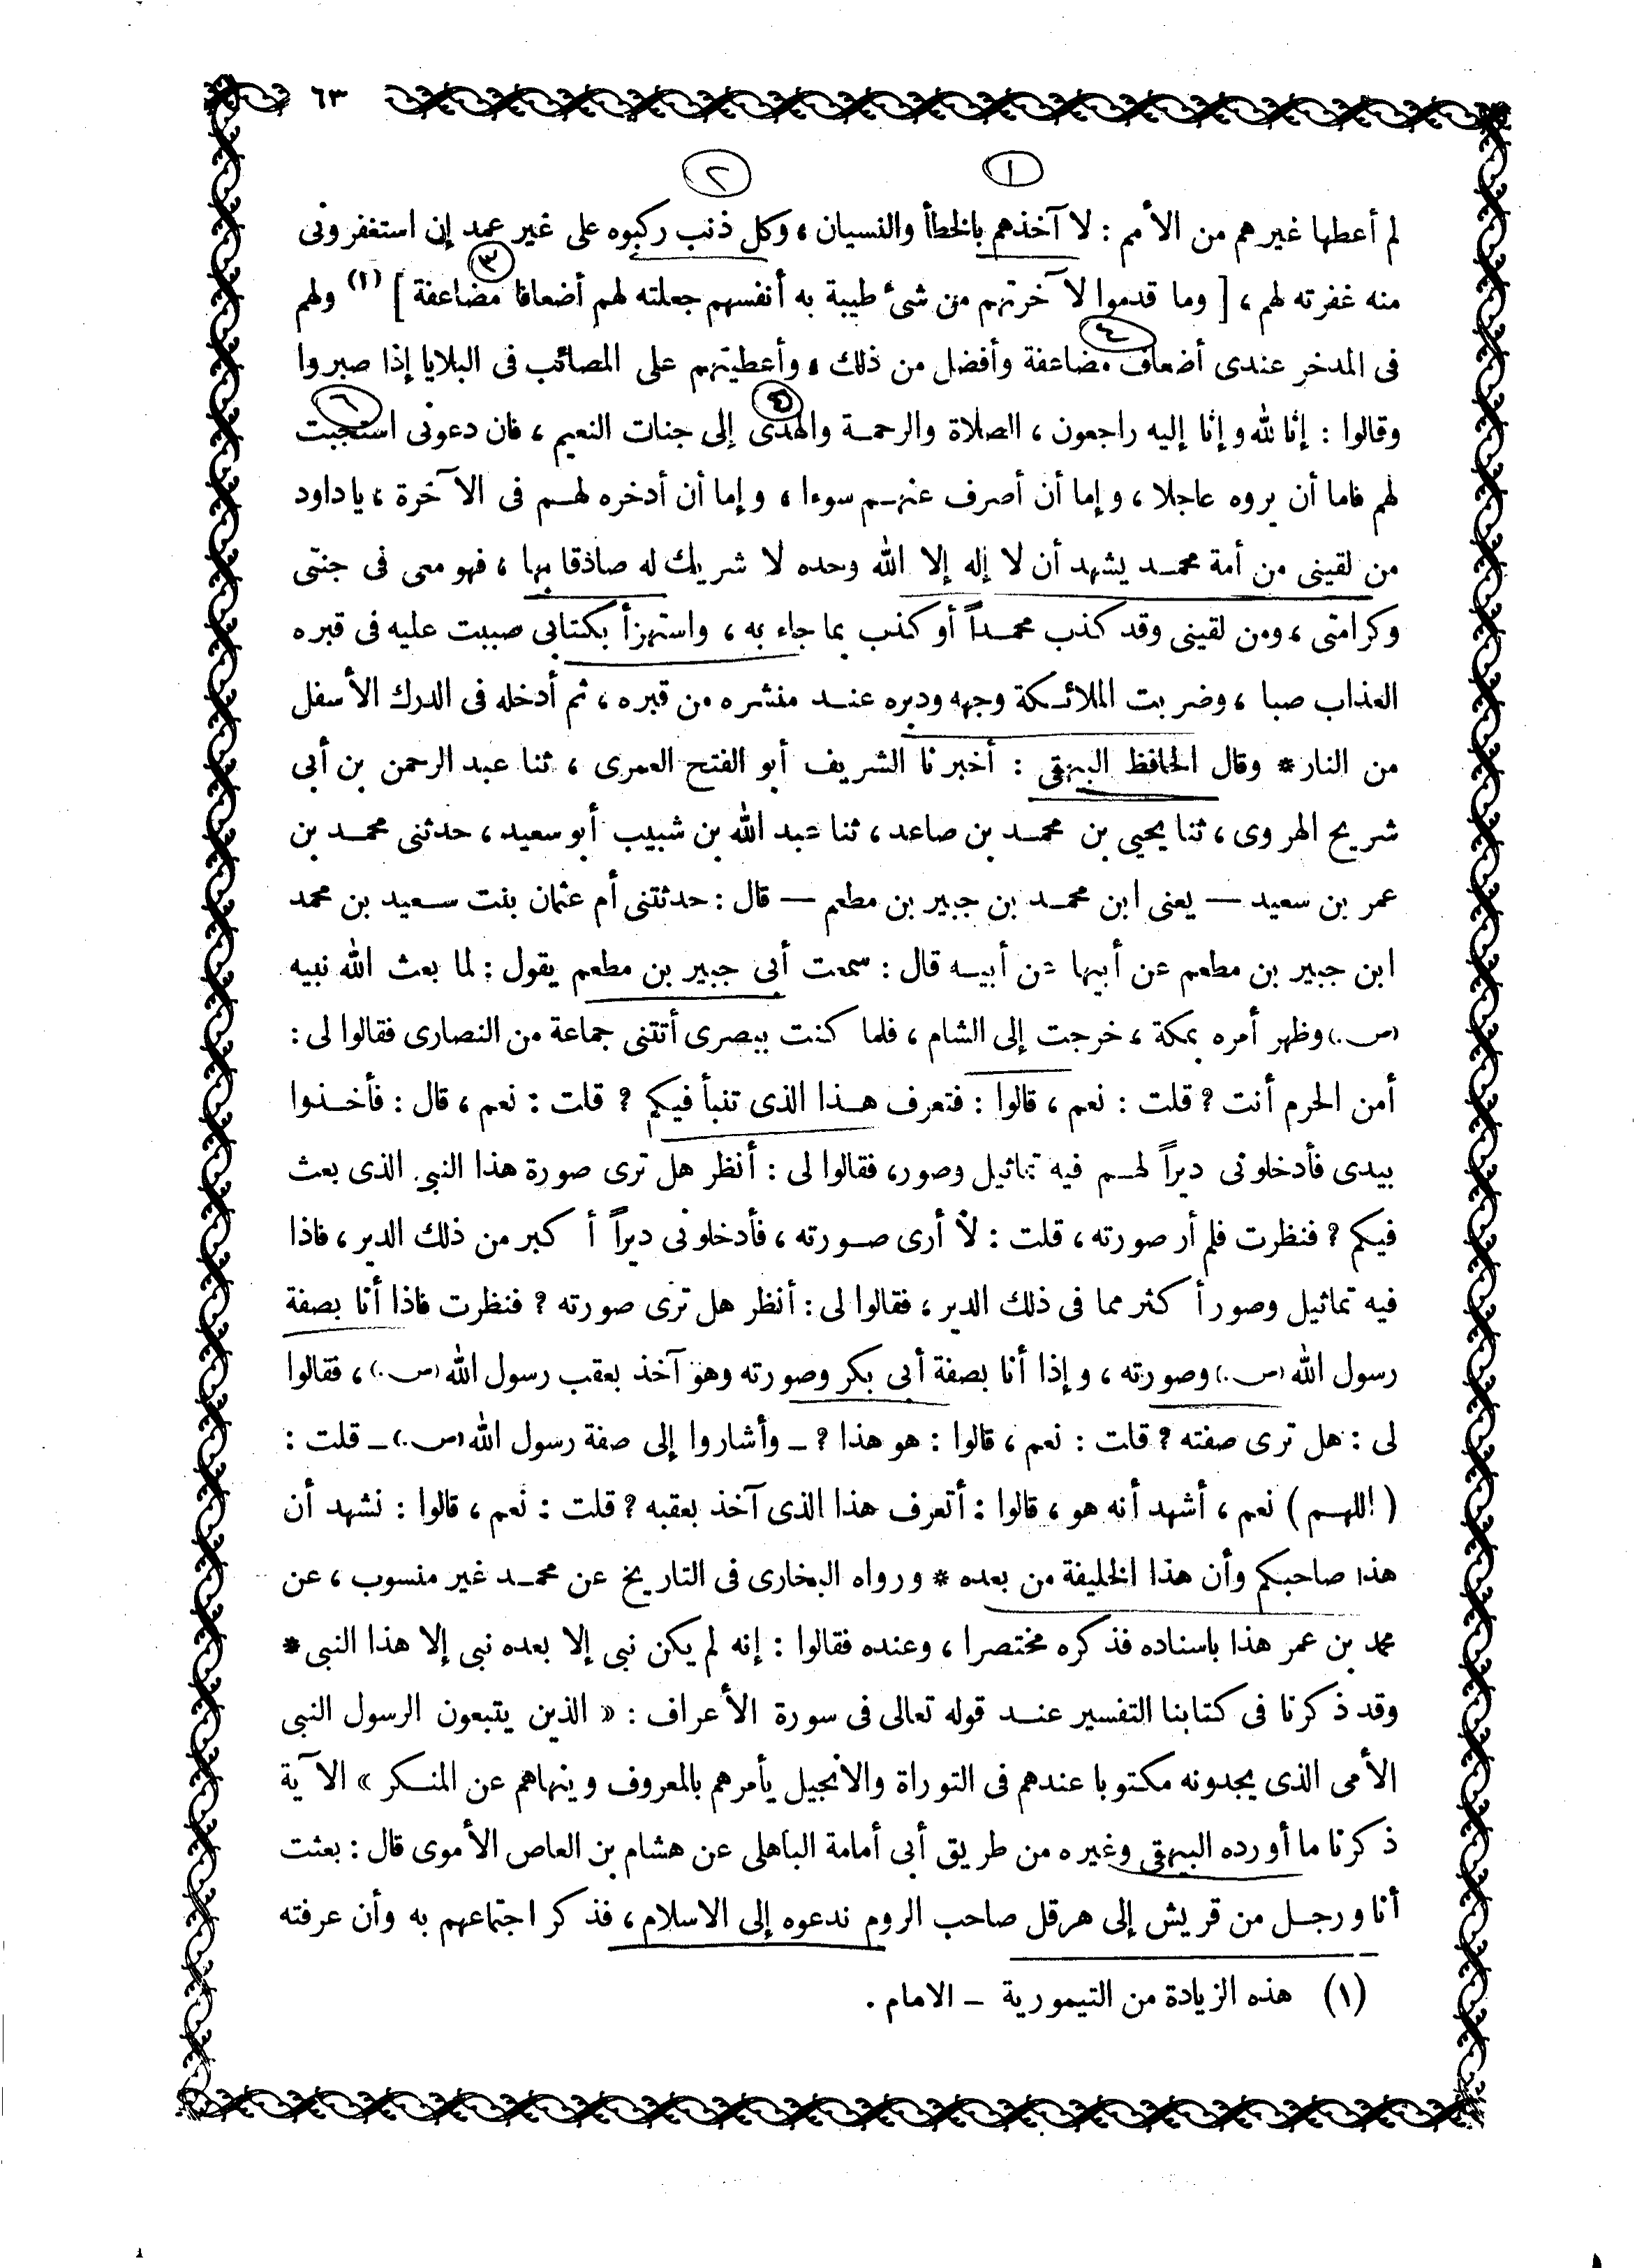 ٦٣
١ ٢
لم أعطها غيرهم من الأمم : لا آخذهم بالخطأ والنسيان ، وكل ذنب ركبوه على غير عمد إن استغفرونى
٣
منه غفرته لهم ، [ وما قدموا لآخرتهم من شىء طيبة به أنفسهم جعلته لهم أضعافا مضاعفة ] (١) ولهم
٤
فى المدخر عندى أضعاف مضاعفة وأفضل من ذلك ، وأعطيتهم على المصائب فى البلايا إذا صبروا
٥ ٦
وقالوا : إنا لله وإنا إليه راجعون ، الصلاة والرحمة والهدى إلى جنات النعيم ، فان دعونى استجبت
لهم فاما أن يروه عاجلا ، وإما أن أصرف عنهم سوءا ، وإما أن أدخره لهم فى الآخرة ، ياداود
من لقينى من أمة محمد يشهد أن لا إله إلا الله وحده لا شريك له صادقا بها ، فهو معى فى جنتى
وكرامتى ، ومن لقينى وقد كذب محمداً أو كذب بما جاء به ، واستهزأ بكتابى صببت عليه فى قبره
العذاب صبا ، وضربت الملائكة وجهه ودبره عند منشره من قبره ، ثم أدخله فى الدرك الأسفل
من النار * وقال الحافظ البيهقى : أخبرنا الشريف أبو الفتح العمرى ، ثنا عبد الرحمن بن أبى
شريح الهروى ، ثنا يحيى بن محمد بن صاعد ، ثنا عبد الله بن شبيب أبو سعيد ، حدثنى محمد بن
عمر بن سعيد — يعنى ابن محمد بن جبير بن مطعم — قال : حدثتنى أم عثمان بنت سعيد بن محمد
ابن جبير بن مطعم عن أبيها عن أبيه قال : سمعت أبى جبير بن مطعم يقول : لما بعث الله نبيه
(ص.) وظهر أمره بمكة ، خرجت إلى الشام ، فلما كنت ببصرى أتتنى جماعة من النصارى فقالوا لى :
أمن الحرم أنت ? قلت : نعم ، قالوا : فتعرف هذا الذى تنبأ فيكم ? قلت : نعم ، قال : فأخذوا
بيدى فأدخلونى ديراً لهم فيه تماثيل وصور، فقالوا لى : أنظر هل ترى صورة هذا النبى الذى بعث
فيكم ? فنظرت فلم أر صورته ، قلت : لا أرى صورته ، فأدخلونى ديراً أكبر من ذلك الدير ، فاذا
فيه تماثيل وصور أكثر مما فى ذلك الدير ، فقالوا لى : أنظر هل ترى صورته ? فنظرت فاذا أنا بصفة
رسول الله (ص.) وصورته ، وإذا أنا بصفة أبى بكر وصورته وهو آخذ بعقب رسول الله (ص.) ، فقالوا
لى : هل ترى صفته ? قلت : نعم ، قالوا : هو هذا ? ــ وأشاروا إلى صفة رسول الله (ص.) ــ قلت :
( اللهم ) نعم ، أشهد أنه هو ، قالوا : أتعرف هذا الذى آخذ بعقبه ? قلت : نعم ، قالوا : نشهد أن
هذا صاحبكم وأن هذا الخليفة من بعده * ورواه البخارى فى التاريخ عن محمد غير منسوب ، عن
محمد بن عمر هذا باسناده فذكره مختصرا ، وعنده فقالوا : إنه لم يكن نبى إلا بعده نبى إلا هذا النبى *
وقد ذكرنا فى كتابنا التفسير عند قوله تعالى فى سورة الأعراف : « الذين يتبعون الرسول النبى
الأمى الذى يجدونه مكتوبا عندهم فى التوراة والانجيل يأمرهم بالمعروف وينهاهم عن المنكر » الآية
ذكرنا ما أورده البيهقى وغيره من طريق أبى أمامة الباهلى عن هشام بن العاص الأموى قال : بعثت
أنا ورجل من قريش إلى هرقل صاحب الروم ندعوه إلى الاسلام ، فذكر اجتماعهم به وأن عرفته
(١) هذه الزيادة من التيمورية ــ الامام .